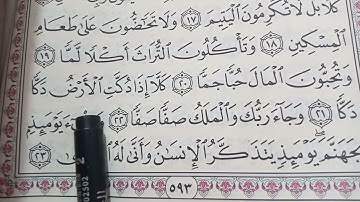 كَلَّا بَل لَّا تُكْرِمُونَ الْيَتِيمَ ١٧ وَلَا تَحَاضُّونَ عَلَىٰ طَعَامِ
الْمِسْكِينِ ١٨ وَتَأْكُلُونَ التُّرَاثَ أَكْلًا لَّمًّا ١٩
وَتُحِبُّونَ الْمَالَ حُبًّا جَمًّا ٢٠ كَلَّا إِذَا دُكَّتِ الْأَرْضُ دَكًّا
دَكًّا ٢١ وَجَاءَ رَبُّكَ وَالْمَلَكُ صَفًّا صَفًّا ٢٢ يَوْمَئِذٍ
بِجَهَنَّمَ يَوْمَئِذٍ يَتَذَكَّرُ الْإِنسَانُ وَأَنَّىٰ لَهُ ٢٣
٥٩٣